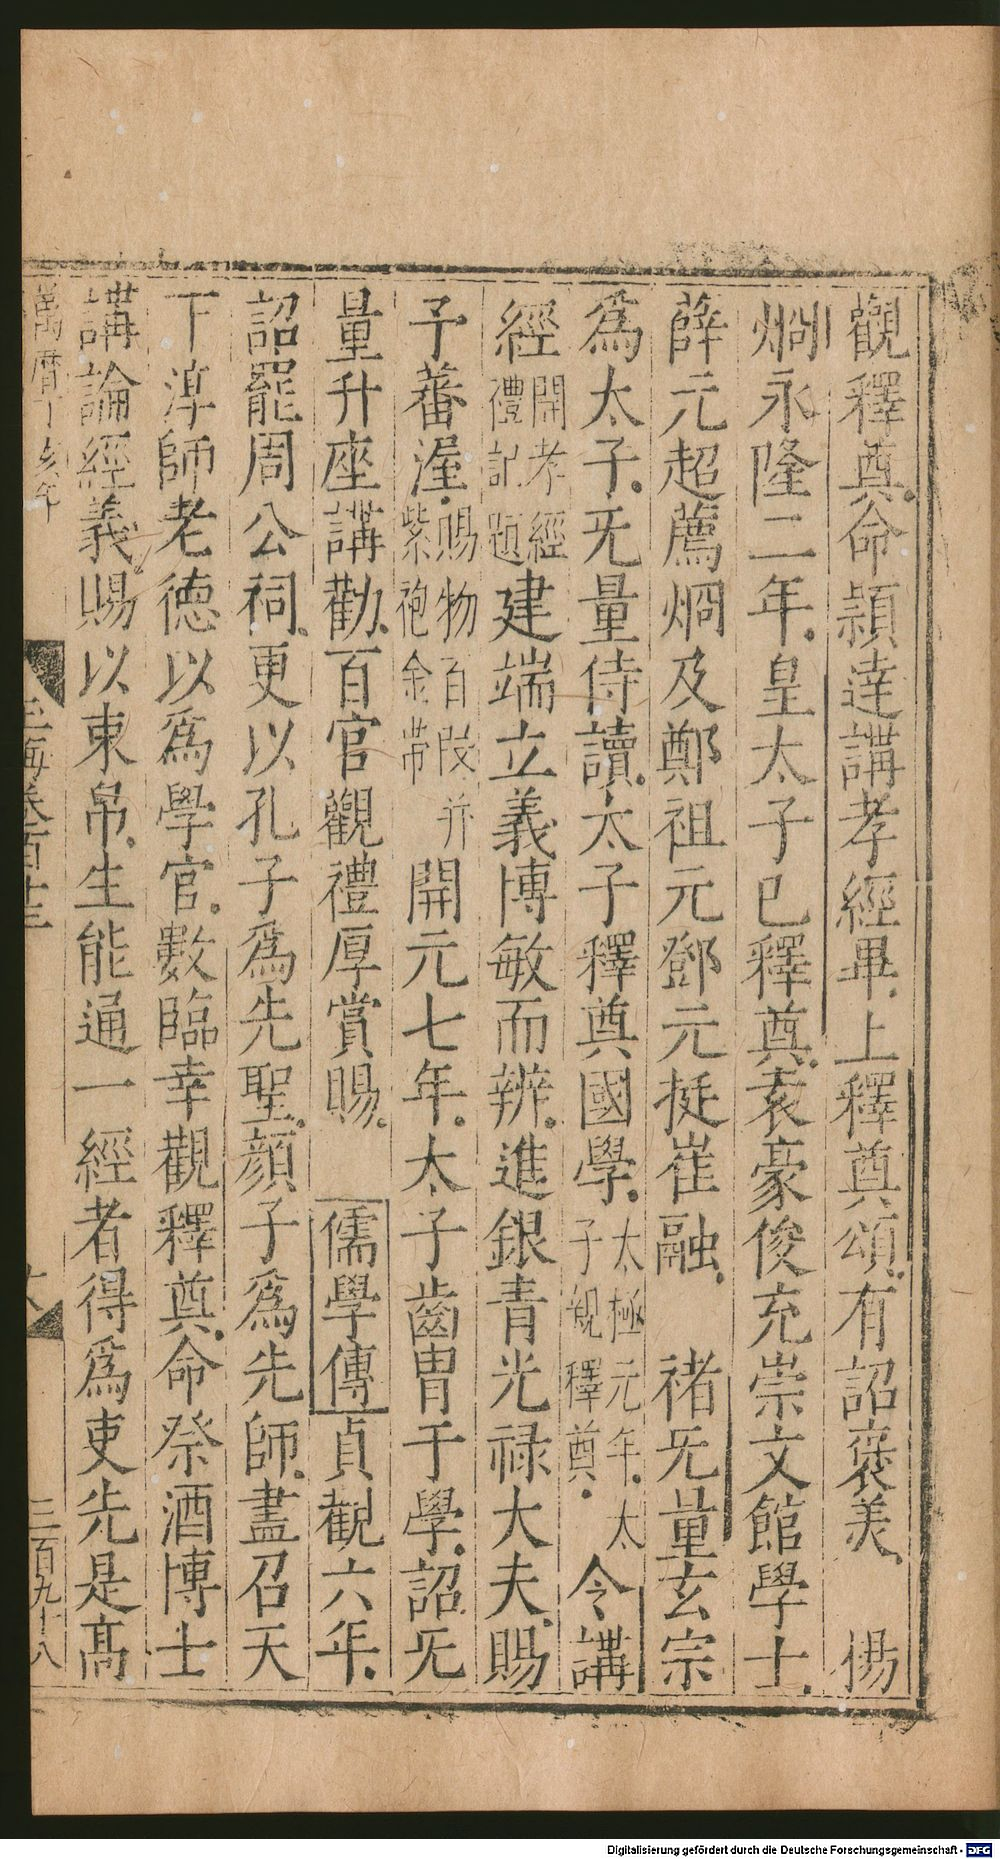 觀釋奠命頴達講孝經畢上釋奠頌有詔襃美　楊
烱永隆二年皇太子已釋奠表豪俊充崇文館學士
薛元超薦烱及鄭祖元鄧元挺崔融　褚旡量玄宗
爲太子旡量侍讀太子釋奠國學太極元年太子親釋奠令講
經開孝經禮記題建端立義博敏而辨進銀青光禄大夫賜
予蕃渥賜物百段并紫袍金帶開元七年太子齒胄于學詔旡
量升座講勸百官觀禮厚賞賜　儒學傳貞觀六年
詔罷周公祠更以孔子爲先聖顔子爲先師盡召天
下淳師老德以爲學官數臨幸觀釋奠命祭酒博士
講論經義賜以束帛生能通一經者得爲吏先是髙
萬曆丁亥年　玉海卷百十三　三百九十八
Digitalisierung gefördert durch die Deutsche Forschungsgemeinschaft - DFG